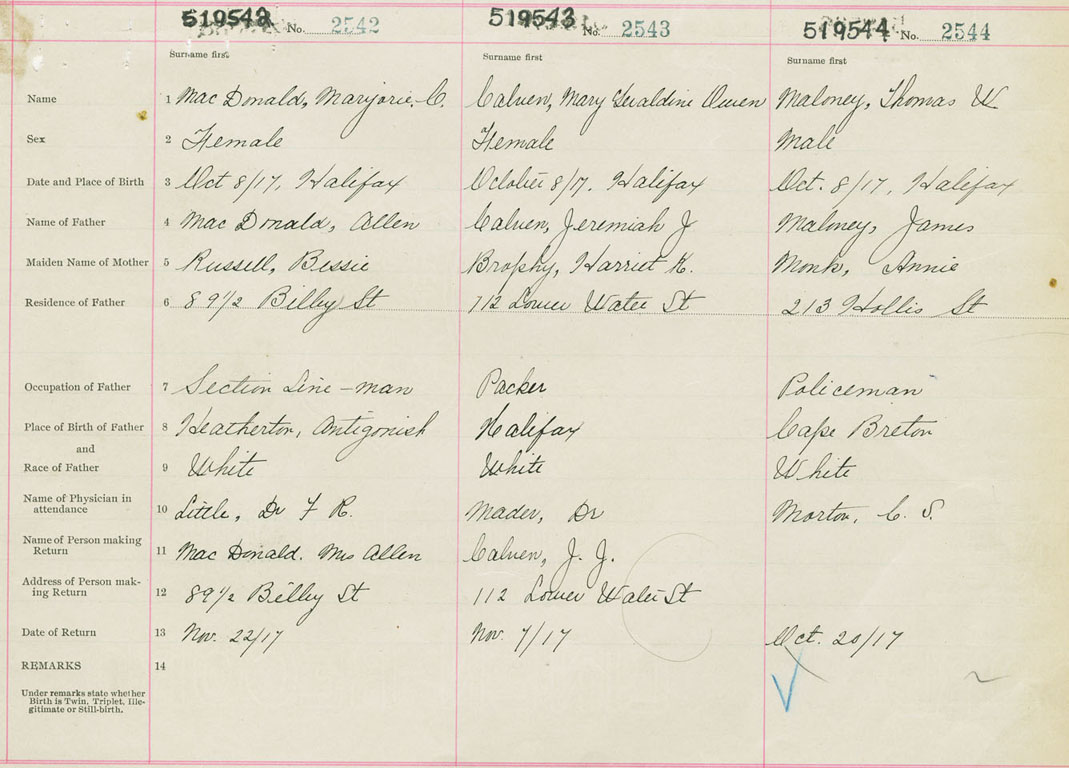 519542 No. 2542 519543 No. 2543 519544 No. 2544
Surname first Surname first Surname first
Name 1 MacDonald, Marjorie C. Calven, Mary Geraldine Owen Maloney, Thomas W
Sex 2 Female Female Male
Date and Place of Birth 3 Oct 8/17, Halifax October 8/17. Halifax Oct. 8/17, Halifax
Name of Father 4 MacDonald, Allen Calven, Jeremiah J Maloney, James
Maiden Name of Mother 5 Russell, Bessie Brophy, Harriet K. Monk, Annie
Residence of Father 6 89½ Bilby St 112 Lower Water St 213 Hollis St
Occupation of Father 7 Section Line-man Packer Policeman
Place of Birth of Father 8 Heatherton, Antigonish Halifax Cape Breton
and
Race of Father 9 White White White
Name of Physician in
attendance 10 Little, Dr F R. Mader, Dr Morton, C. S.
Name of Person making
Return 11 MacDonald. Mrs Allen Calven, J. J.
Address of Person mak-
ing Return 12 89½ Bilby St 112 Lower Water St
Date of Return 13 Nov. 22/17 Nov. 7/17 Oct. 20/17
REMARKS 14
Under remarks state whether
Birth is Twin, Triplet, Ille-
gitimate or Still-birth.